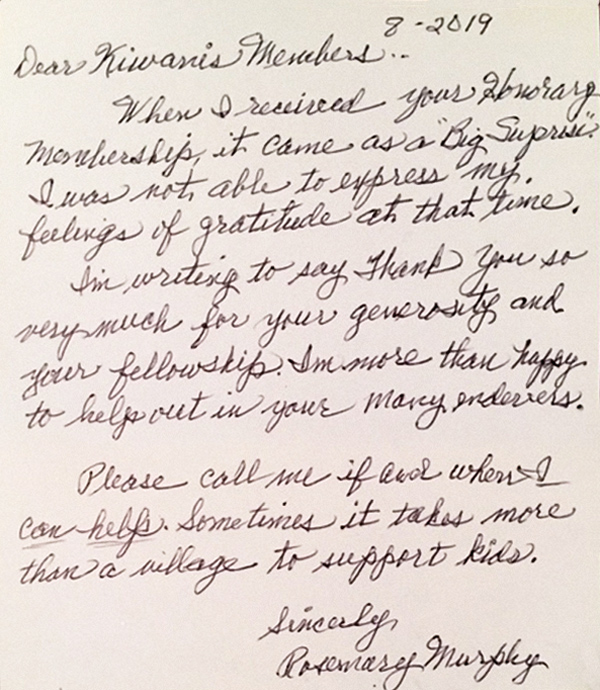 8-2019
Dear Kiwanis Members..
When I received your Honorary
Membership, it came as a "Big Suprise".
I was not able to express my
feelings of gratitude at that time.
I'm writing to say Thank You so
very much for your generosity and
your fellowship. I'm more than happy
to help out in your many endevers.
Please call me if and when I
can help. Sometimes it takes more
than a village to support kids.
Sincerly,
Rosemary Murphy